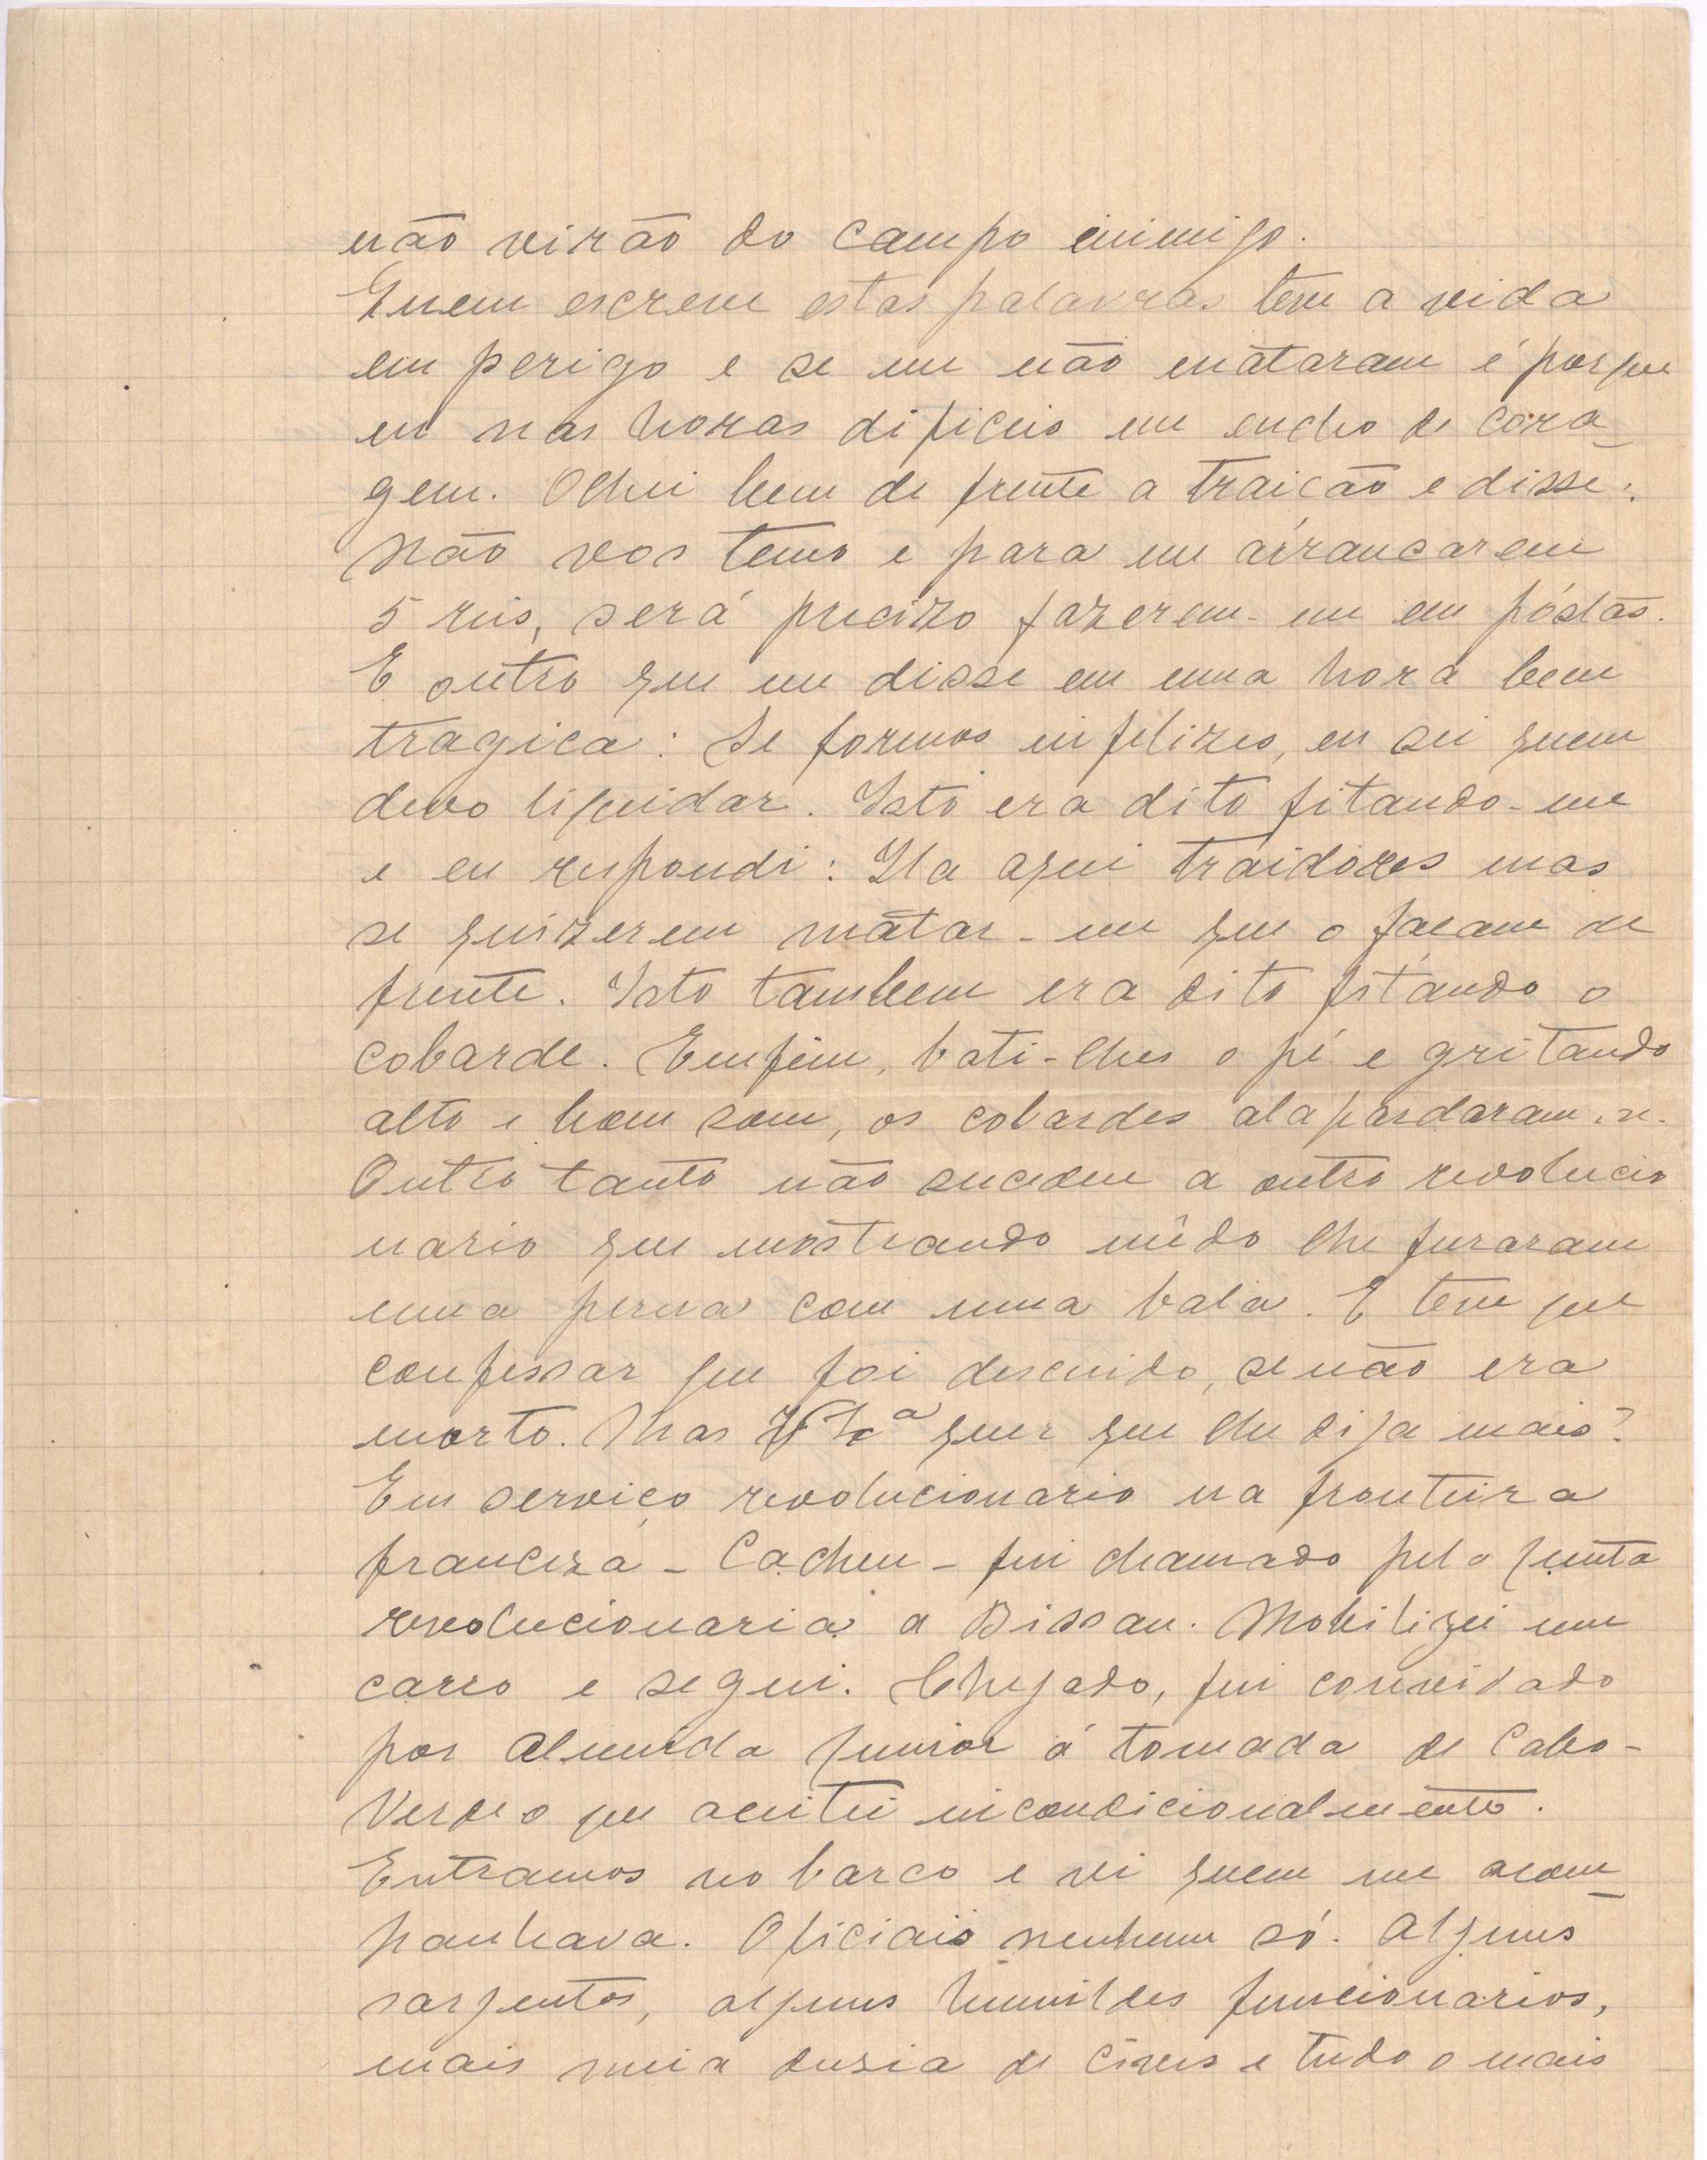 não virão do campo inimigo.
Quem escreve estas palavras teve a vida
em perigo e se me não mataram é porque
eu nas horas dificeis me encho de cora-
gem. Olhei bem de frente a traicão e disse:
Não vos temo e para me arrancarem
5 reis, será precizo fazerem-me em póstas.
E outro que me disse em uma hora bem
tragica: Se formos infelizes, eu sei quem
devo liquidar. Isto era dito fitando-me
e eu respondi: Ha aqui traidores mas
se quizerem matar-me que o façam de
frente. Isto tambem era dito fitando o
cobarde. Emfim, bati-lhes o pé e gritando
alto e bom som, os cobardes alapardaram-se.
Outro tanto não sucedeu a outro revolucio
nario que mostrando mêdo lhe furaram
uma perna com uma bala. E teve que
confessar que foi descuido, senão era
morto. Mas V Exª quer que lhe diga mais?
Em serviço revolucionario na fronteira
franceza - Cacheu - fui chamado pela Junta
revolucionaria a Bissau. Mobilizei um
carro e segui. Chegado, fui convidado
por Almeida Junior á tomada de Cabo-
Verde o que aceitei incondicionalmente.
Entramos no barco e vi quem me acom-
panhava. Oficiais nenhum só. Alguns
sargentos, alguns humildes funcionarios,
mais meia duzia de civis e tudo o mais